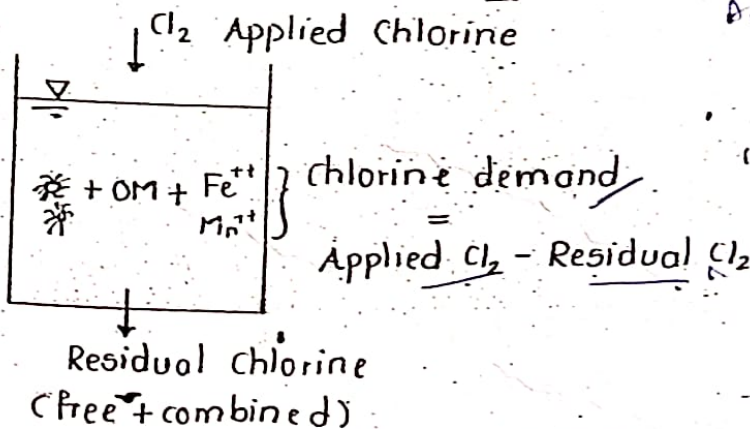 Cl₂ Applied Chlorine
+ OM + Fe⁺⁺ } Chlorine demand
Mn⁺⁺
=
Applied Cl₂ - Residual Cl₂
Residual Chlorine
(free + combined)